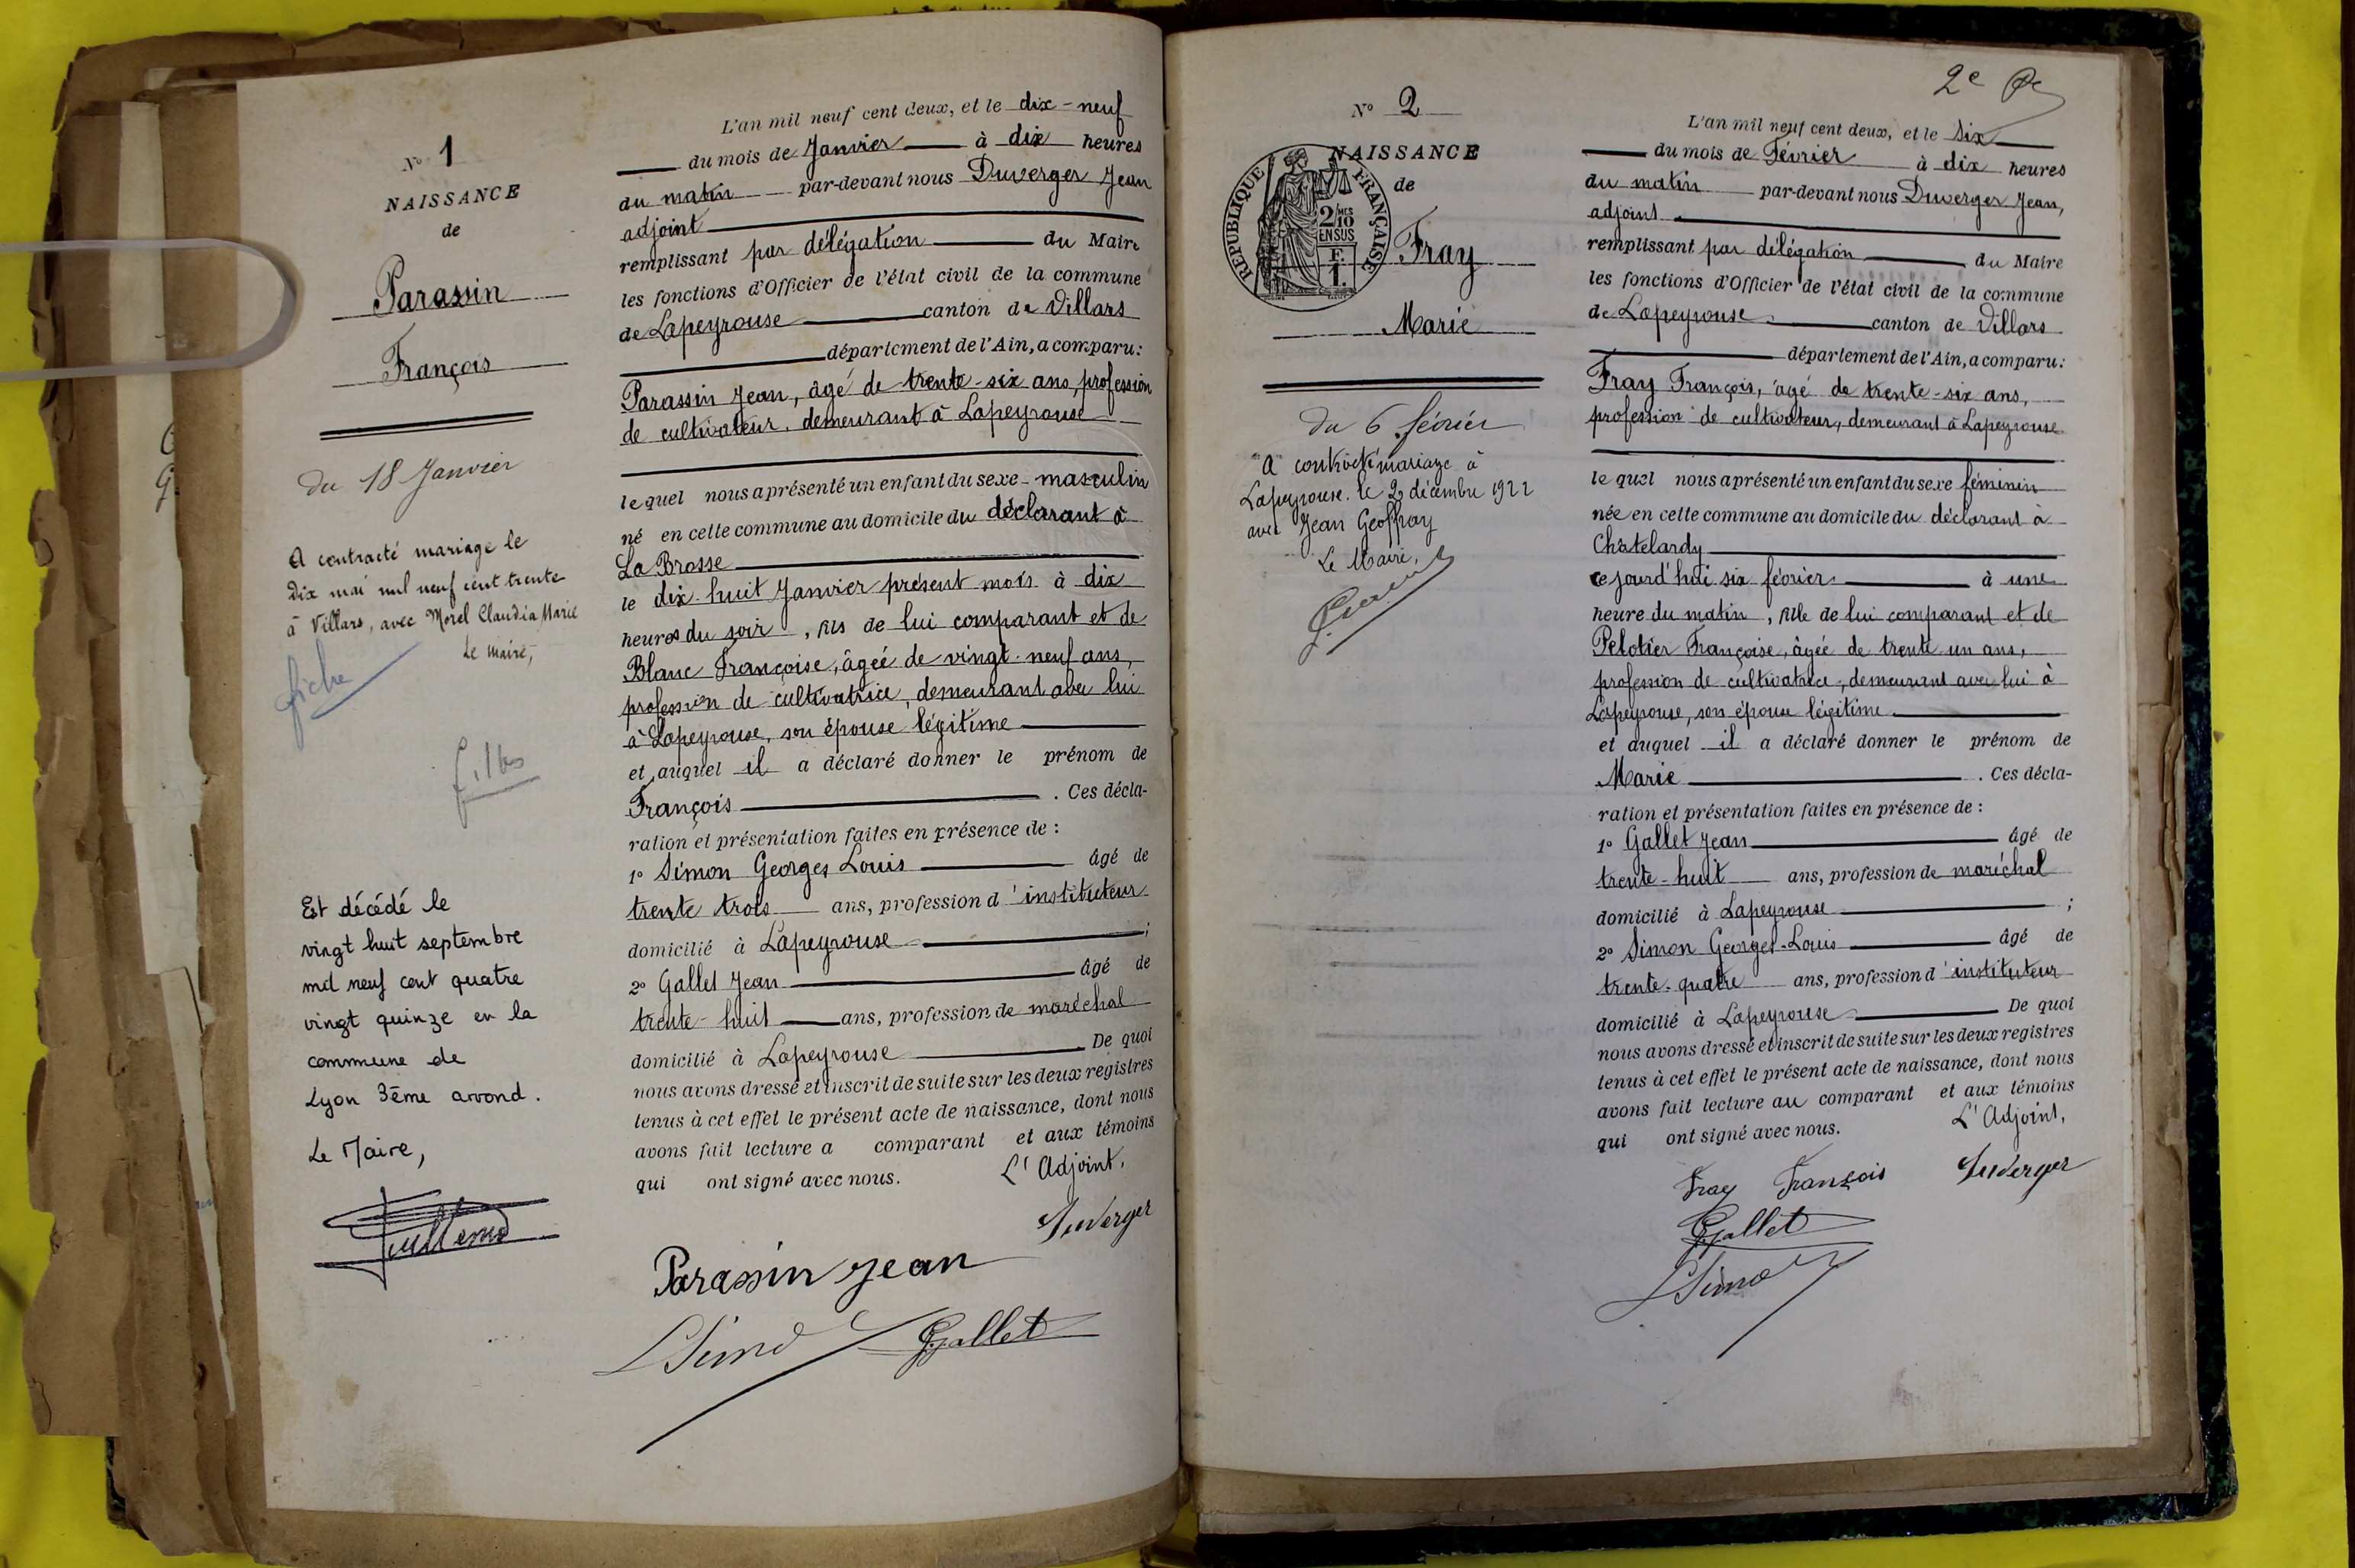 N° 1
NAISSANCE
de
Parassin
François
du 18 Janvier
A contracté mariage le
dix mai mil neuf cent trente
à Villars, avec Morel Claudia Marie
Le maire,
fiche
Est décédé le
vingt huit septembre
mil neuf cent quatre
vingt quinze en la
commune de
Lyon 3ème arrond.
Le Maire,
L'an mil neuf cent deux, et le dix-neuf
du mois de Janvier à dix heures
du matin par-devant nous Duverger Jean
adjoint
remplissant par délégation du Maire
les fonctions d'Officier de l'état civil de la commune
de Lapeyrouse canton de Villars
département de l'Ain, a comparu:
Parassin Jean, âgé de trente-six ans, profession
de cultivateur, demeurant à Lapeyrouse
lequel nous a présenté un enfant du sexe masculin
né en cette commune au domicile du déclarant à
La Brosse
le dix-huit Janvier présent mois à dix
heures du soir, fils de lui comparant et de
Blanc Françoise, âgée de vingt-neuf ans,
profession de cultivatrice, demeurant avec lui
à Lapeyrouse, son épouse légitime
et auquel il a déclaré donner le prénom de
François. Ces décla-
ration et présentation faites en présence de :
1° Simon Georges Louis âgé de
trente trois ans, profession d'instituteur
domicilié à Lapeyrouse ;
2° Gallet Jean âgé de
trente-huit ans, profession de maréchal
domicilié à Lapeyrouse De quoi
nous avons dressé et inscrit de suite sur les deux registres
tenus à cet effet le présent acte de naissance, dont nous
avons fait lecture a comparant et aux témoins
qui ont signé avec nous. L'Adjoint,
Duverger
Parassin Jean
LSimon Gallet
2e
N° 2
NAISSANCE
de
REPUBLIQUE FRANÇAISE
2/10 MES
EN SUS
F.
1.
Fray
Marie
du 6 février
A contracté mariage à
Lapeyrouse le 2 décembre 1922
avec Jean Geoffray
Le Maire,
L'an mil neuf cent deux, et le six
du mois de Février à dix heures
du matin par-devant nous Duverger Jean,
adjoint
remplissant par délégation du Maire
les fonctions d'Officier de l'état civil de la commune
de Lapeyrouse canton de Villars
département de l'Ain, a comparu:
Fray François, âgé de trente-six ans,
profession de cultivateur, demeurant à Lapeyrouse
lequel nous a présenté un enfant du sexe féminin
née en cette commune au domicile du déclarant à
Châtelardy
cejourd'hui six février à une
heure du matin, fille de lui comparant et de
Pelotier Françoise, âgée de trente un ans,
profession de cultivatrice, demeurant avec lui à
Lapeyrouse, son épouse légitime
et auquel il a déclaré donner le prénom de
Marie. Ces décla-
ration et présentation faites en présence de :
1° Gallet Jean âgé de
trente-huit ans, profession de maréchal
domicilié à Lapeyrouse ;
2° Simon Georges-Louis âgé de
trente-quatre ans, profession d'instituteur
domicilié à Lapeyrouse De quoi
nous avons dressé et inscrit de suite sur les deux registres
tenus à cet effet le présent acte de naissance, dont nous
avons fait lecture au comparant et aux témoins
qui ont signé avec nous. L'Adjoint,
Fray François Duverger
Gallet
LSimon